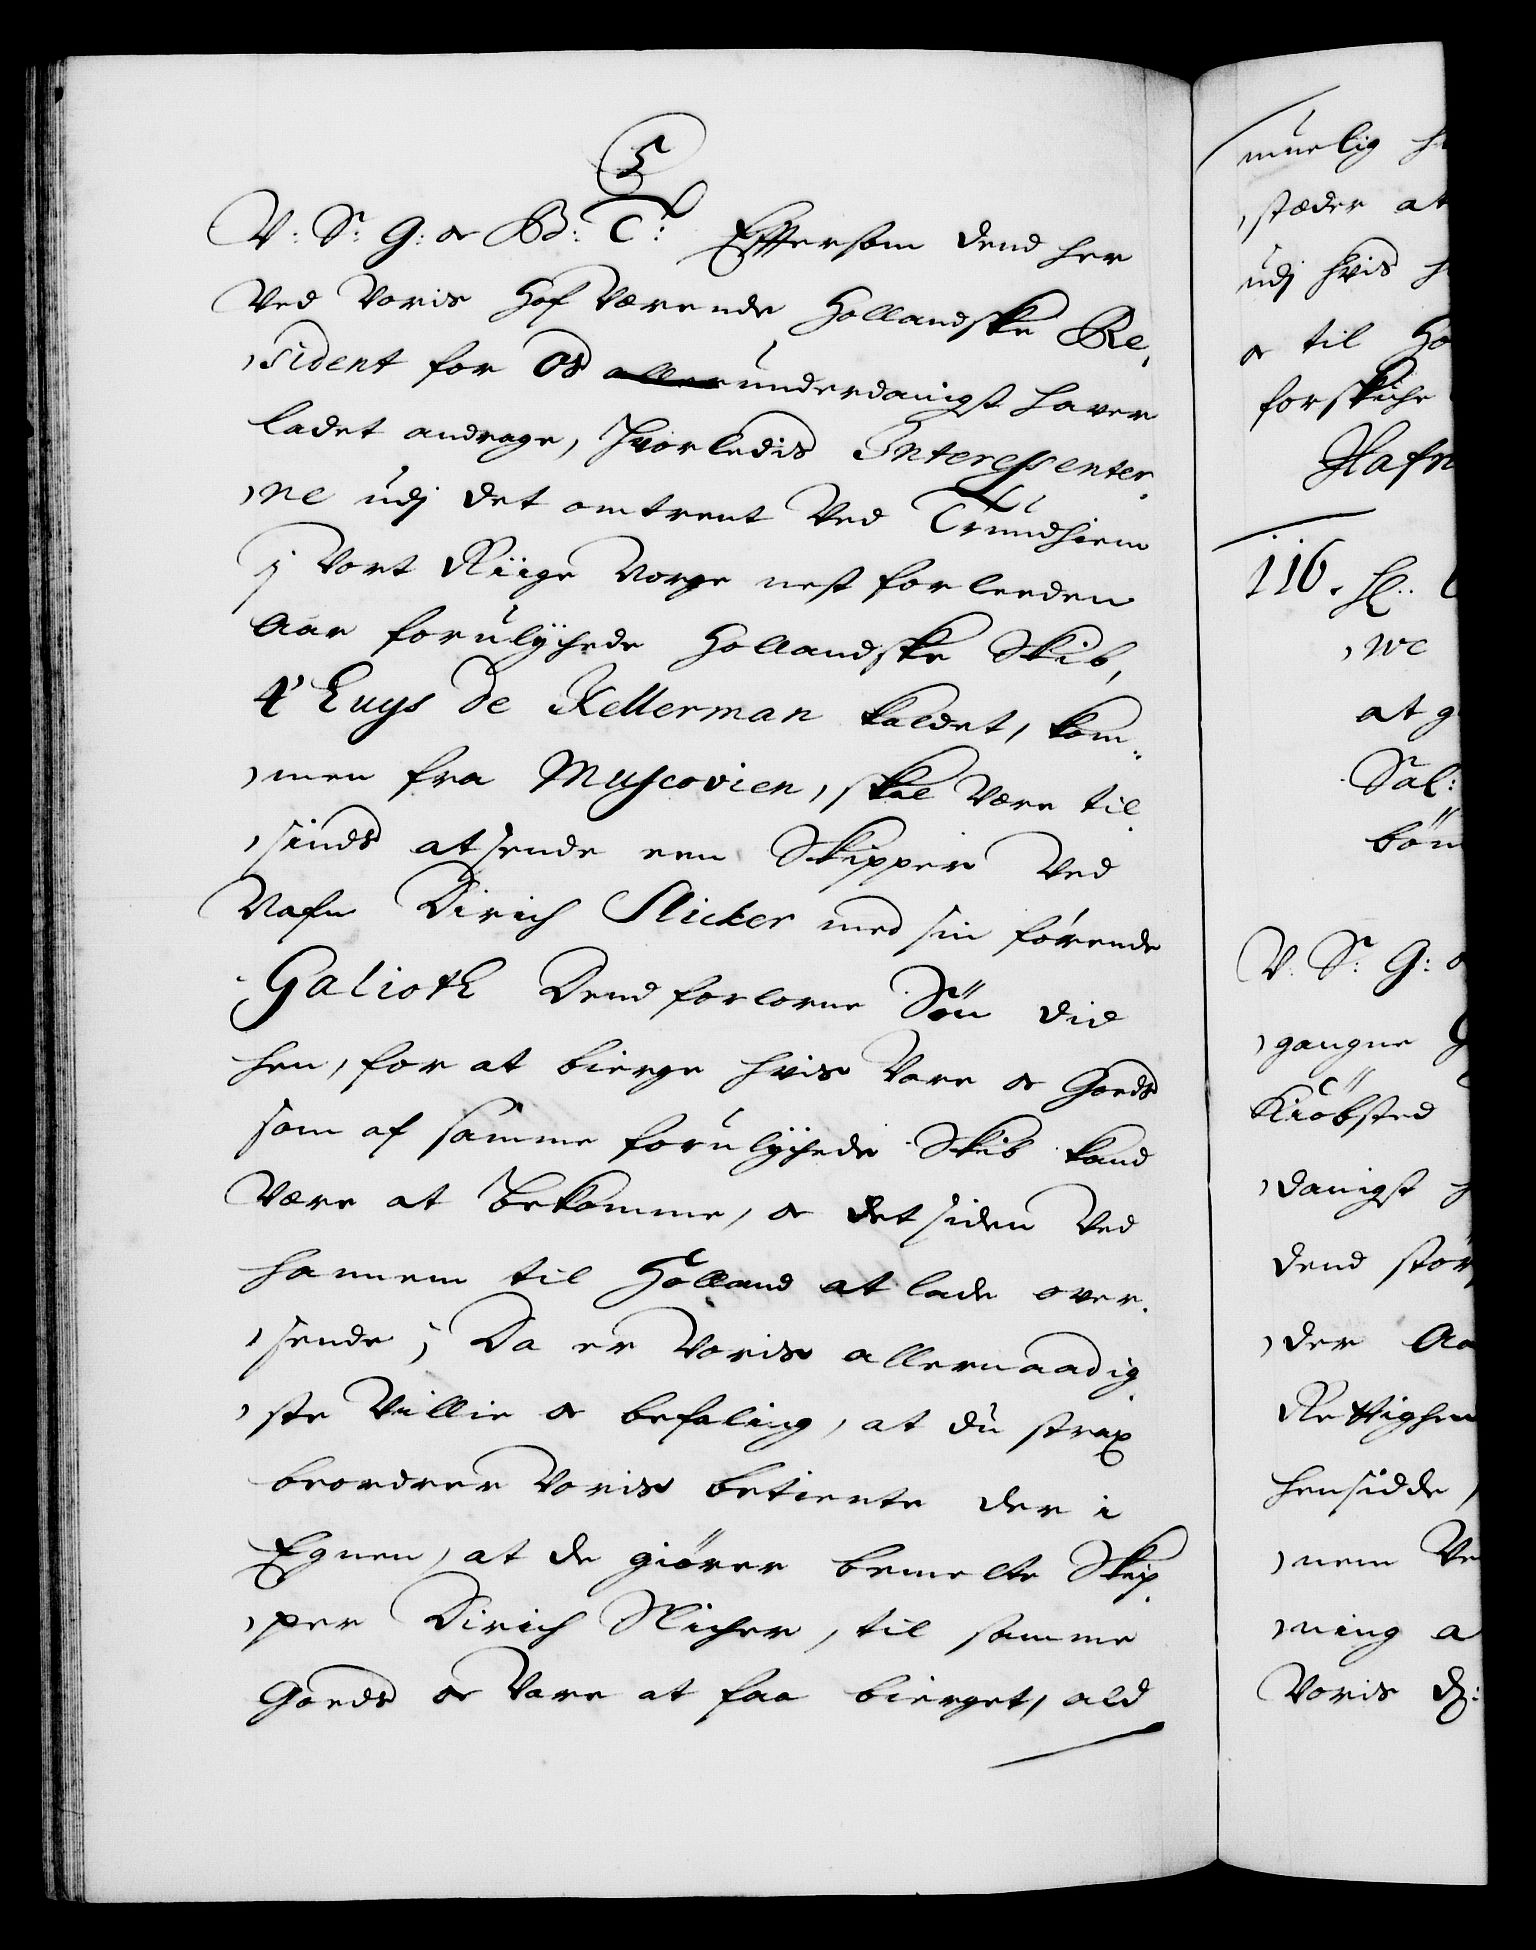 5
V: S: G: oc Bd: C: Eftersom dend her
Ved Voris Hof Værende Hollandske Re,
,sident for Os allerunderdanigst haver
ladet andrage, hvorledis Interessenter,
,ne udj det omtrent Ved Trundhiem
j Vort Riige Norge nest forleeden
Aar forulychede Hollandske Skib,
t' Huys de Kellerman kaldet, kom,
,men fra Muscovien, skal Være til
,sinds at sende een Skipper Ved
Nafn Dirich Slicker med sin førende
Galioth Dend forlorne Søn did
hen, for at bierge hvis Vare oc Goeds
som af samme forulychede Skib kand
Være at bekomme, oc det siden Ved
hannem til Holland at lade over,
,sende; Da er Voris allernaadig,
,ste Villie oc befaling, at du strax
beordrer Voris betiente der i
Egnen, at de giører bemelte Skip,
,per Dirich Slicher, til samme
Goeds oc Vare at faa bierget, ald
muelig
,stæder at
udj hvis
oc til
forskiche
116.
,ne
at
Sal:
V: S: G:
,gangne
Kiøbsted
,danigst
dend stør
,der Aa
Rettighe
hensidde,
,nem Ve
,ning a
Voris